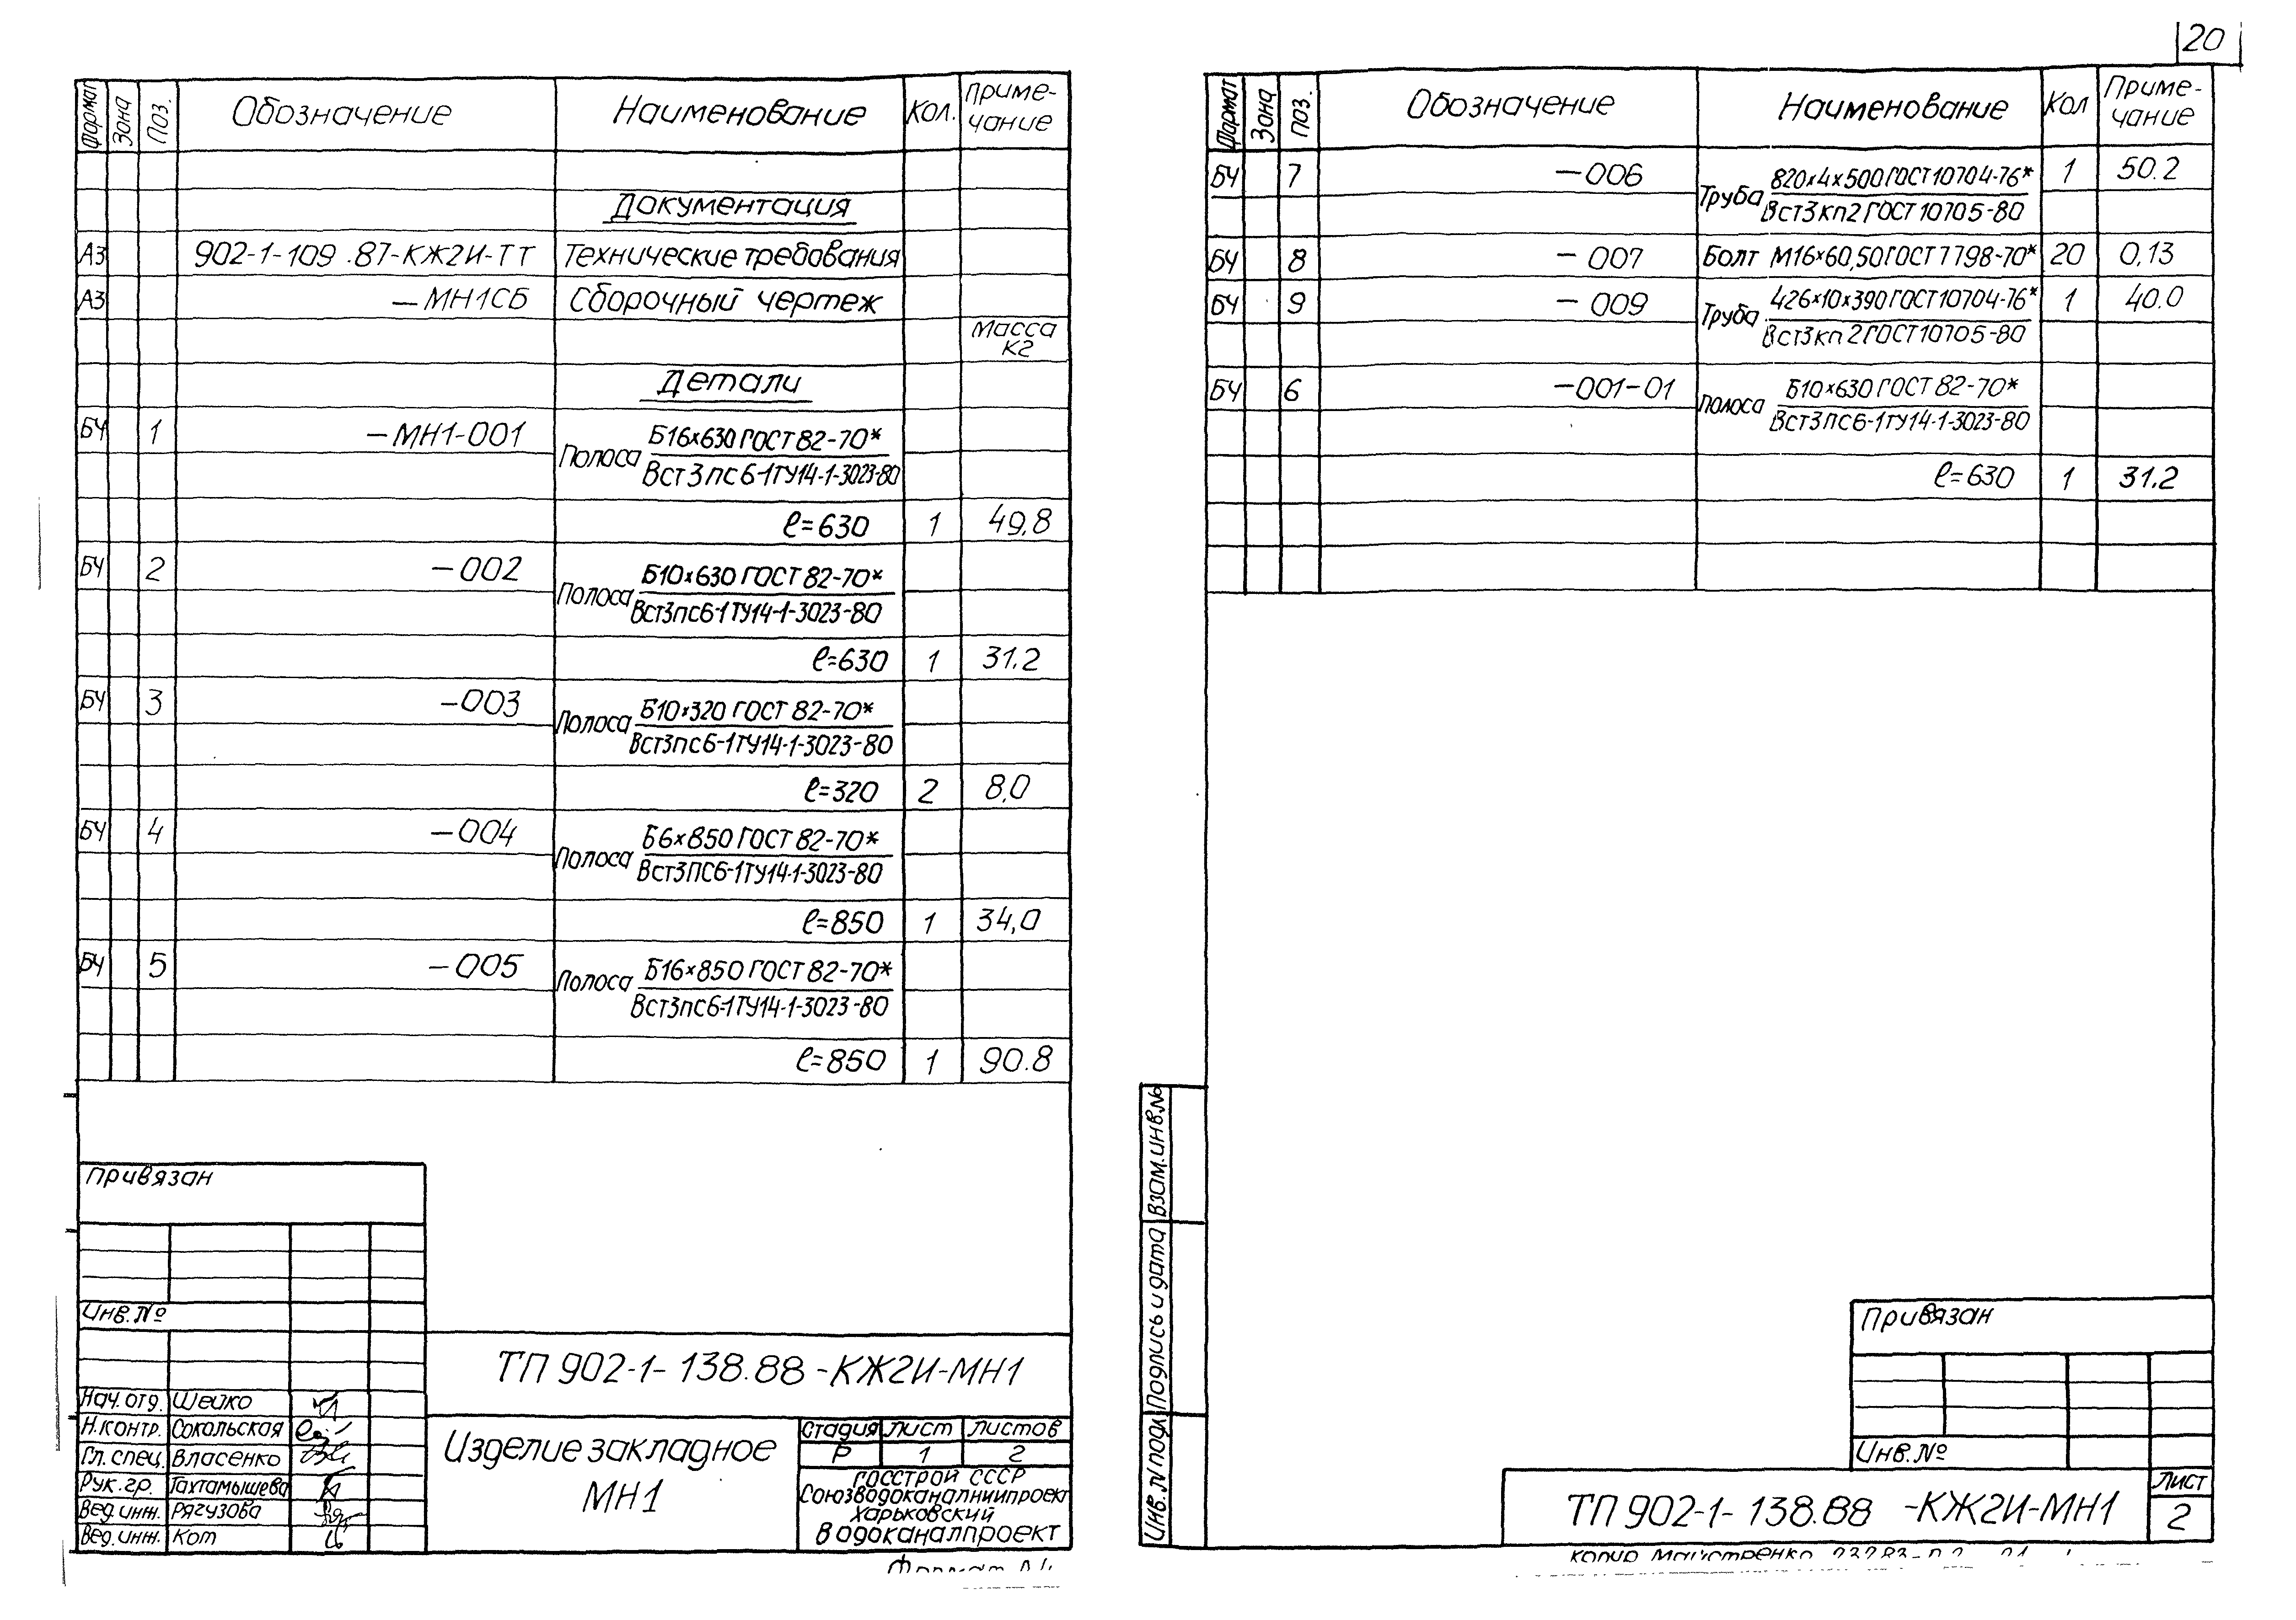 20
Формат Зона Поз. Обозначение Наименование Кол. Приме-
чание
Документация
А3 902-1-109.87-КЖ2И-ТТ Технические требования
А3 —МН1СБ Сборочный чертеж
Масса
кг
Детали
БЧ 1 —МН1-001 Полоса Б16х630 ГОСТ 82-70*
Вст3пс6-1ТУ14-1-3023-80
ℓ=630 1 49,8
БЧ 2 —002 Полоса Б10х630 ГОСТ 82-70*
Вст3пс6-1ТУ14-1-3023-80
ℓ=630 1 31.2
БЧ 3 —003 Полоса Б10х320 ГОСТ 82-70*
Вст3пс6-1ТУ14-1-3023-80
ℓ=320 2 8,0
БЧ 4 —004 Полоса Б6х850 ГОСТ 82-70*
Вст3пс6-1ТУ14-1-3023-80
ℓ=850 1 34,0
БЧ 5 —005 Полоса Б16х850 ГОСТ 82-70*
Вст3пс6-1ТУ14-1-3023-80
ℓ=850 1 90.8
Привязан
Инв.№
ТП 902-1-138.88-КЖ2И-МН1
Нач.отд. Шейко
Н.контр. Сокольская
Гл.спец. Власенко
Рук.гр. Тахтамышева
Вед.инж. Рягузова
Вед.инж. Кот
Изделие закладное
МН1
Стадия Лист Листов
Р 1 2
Госстрой СССР
Союзводоканалниипроект
Харьковский
Водоканалпроект
Формат А4
Формат Зона Поз. Обозначение Наименование Кол Приме-
чание
БЧ 7 —006 Труба 820х4х500 ГОСТ 10704-76* 1 50.2
Вст3кп2 ГОСТ 10705-80
БЧ 8 —007 Болт М16х60,50 ГОСТ 7798-70* 20 0,13
БЧ 9 —009 Труба 426х10х390 ГОСТ 10704-76* 1 40.0
Вст3кп2 ГОСТ 10705-80
БЧ 6 —001-01 Полоса Б10х630 ГОСТ 82-70*
Вст3пс6-1ТУ14-1-3023-80
ℓ=630 1 31.2
Взам.инв.№
Подпись и дата
Инв.№ подл.
Привязан
Инв.№
ТП 902-1-138.88-КЖ2И-МН1
Лист
2
Копир Майстренко